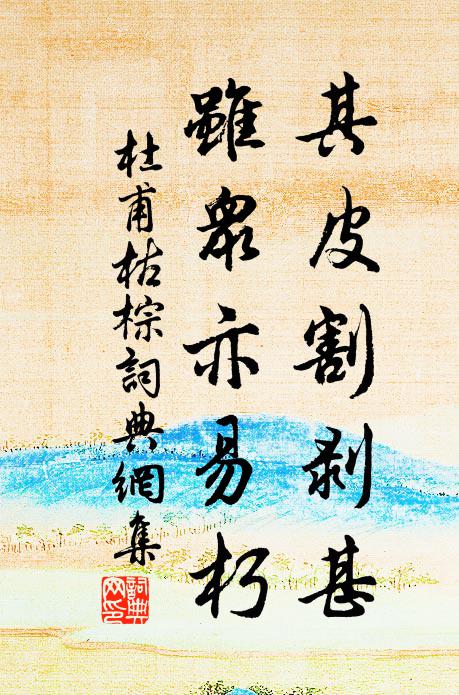 其皮割剥甚
雖眾亦易朽
杜甫枯棕詞典網集